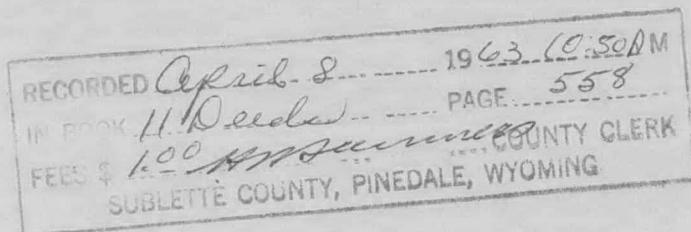 RECORDED April 8 1963 10:50 A M
IN BOOK 11 Deeds PAGE 558
FEES $ 1.00 COUNTY CLERK
SUBLETTE COUNTY, PINEDALE, WYOMING